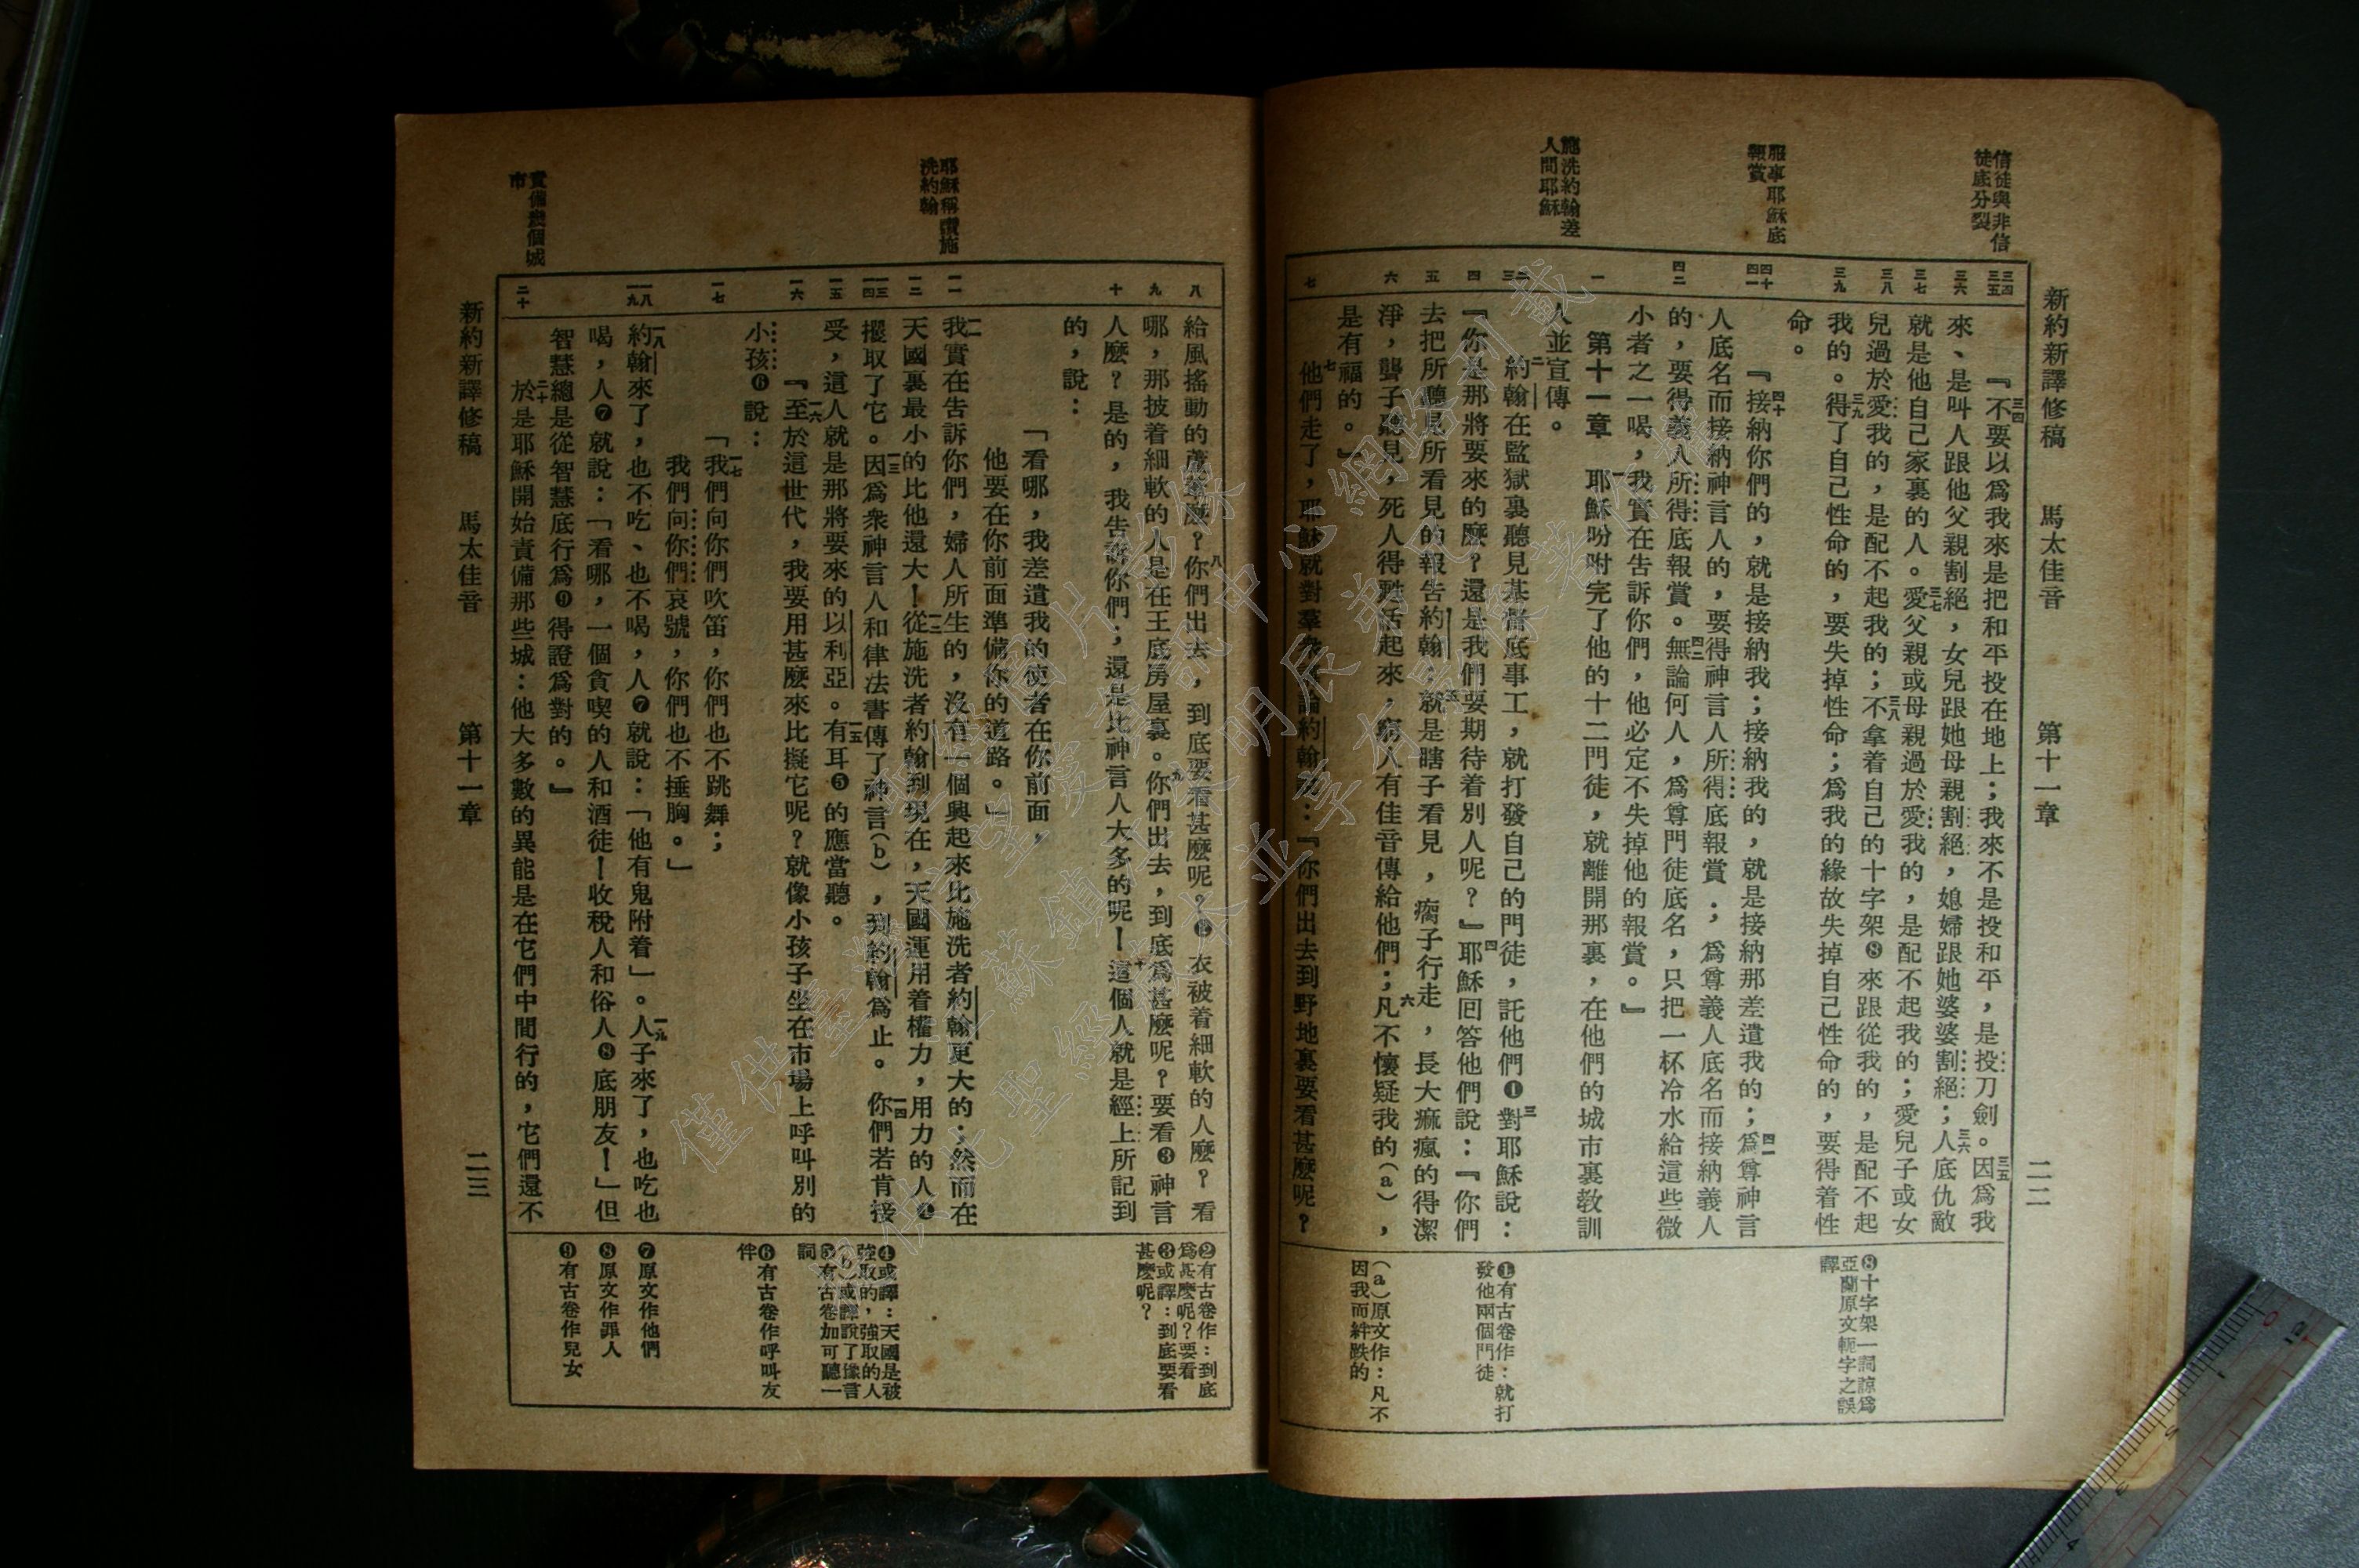 新約新譯修稿　馬太佳音　第十一章　二二
信徒與非信
徒底分裂
服事耶穌底
報賞
施洗約翰差
人問耶穌
三四
三五
三六
三七
三八
三九
四十
四一
四二
一
二
三
四
五
六
七
三四『不要以爲我來是把和平投在地上；我來不是投和平，是投刀劍。三五因爲我
來、是叫人跟他父親割絕，女兒跟她母親割絕，媳婦跟她婆婆割絕；三六人底仇敵
就是他自己家裏的人。三七愛父親或母親過於愛我的，是配不起我的；愛兒子或女
兒過於愛我的，是配不起我的；三八不拿着自己的十字架❽來跟從我的，是配不起
我的。三九得了自己性命的，要失掉性命；爲我的緣故失掉自己性命的，要得着性
命。
四十『接納你們的，就是接納我；接納我的，就是接納那差遣我的；四一爲尊神言
人底名而接納神言人的，要得神言人所得底報賞；爲尊義人底名而接納義人
的，要得義人所得底報賞。四二無論何人，爲尊門徒底名，只把一杯冷水給這些微
小者之一喝，我實在告訴你們，他必定不失掉他的報賞。』
第十一章　一耶穌吩咐完了他的十二門徒，就離開那裏，在他們的城市裏教訓
人並宣傳。
二約翰在監獄裏聽見基督底事工，就打發自己的門徒，託他們❶三對耶穌說：
『你是那將要來的麼？還是我們要期待着別人呢？』四耶穌回答他們說：『你們
去把所聽見所看見的報告約翰：五就是瞎子看見，瘸子行走，長大痲瘋的得潔
淨，聾子聽見，死人得甦活起來，窮人有佳音傳給他們；六凡不懷疑我的(a)，
是有福的。』
七他們走了，耶穌就對羣衆講論約翰說：『你們出去到野地裏要看甚麼呢？
❽十字架一詞諒爲
亞蘭原文軛字之誤
譯
❶有古卷作：就打
發他兩個門徒
(a)原文作：凡不
因我而絆跌的
耶穌稱讚施
洗約翰
責備幾個城
市
八
九
十
一一
一二
一三
一四
一五
一六
一七
一八
一九
二十
給風搖動的蘆葦麼？八你們出去，到底要看甚麼呢？❷衣被着細軟的人麼？看
哪，那披着細軟的人是在王底房屋裏。九你們出去，到底爲甚麼呢？要看❸神言
人麼？是的，我告訴你們；還是比神言人大多的呢！十這個人就是經上所記到
的，說：
「看哪，我差遣我的使者在你前面，
他要在你前面準備你的道路。」
一一我實在告訴你們，婦人所生的，沒有一個興起來比施洗者約翰更大的；然而在
天國裏最小的比他還大！一二從施洗者約翰到現在，天國運用着權力，用力的人❹
攫取了它。一三因爲衆神言人和律法書傳了神言(b)，到約翰爲止。一四你們若肯接
受，這人就是那將要來的以利亞。一五有耳❺的應當聽。
一六『至於這世代，我要用甚麼來比擬它呢？就像小孩子坐在市場上呼叫別的
小孩❻說：
一七「我們向你們吹笛，你們也不跳舞；
我們向你們哀號，你們也不捶胸。」
一八約翰來了，也不吃、也不喝，人❼就說：「他有鬼附着」。一九人子來了，也吃也
喝，人❼就說：「看哪，一個貪喫的人和酒徒！收稅人和俗人❽底朋友！」但
智慧總是從智慧底行爲❾得證爲對的。』
二十於是耶穌開始責備那些城：他大多數的異能是在它們中間行的，它們還不
❷有古卷作：到底
爲甚麼呢？要看
❸或譯：到底要看
甚麼呢？
❹或譯：天國是被
強取的，強取的人
(b)或譯說了豫言
❺有古卷加可聽一
詞
❻有古卷作呼叫友
伴
❼原文作他們
❽原文作罪人
❾有古卷作兒女
新約新譯修稿　馬太佳音　第十一章　二三